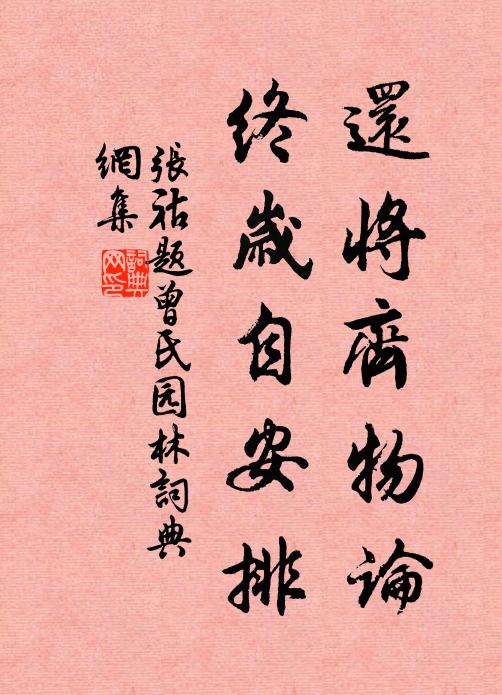 還將齊物論
終歲自安排
張祜題曾氏园林詞典
網集
詞典
网印